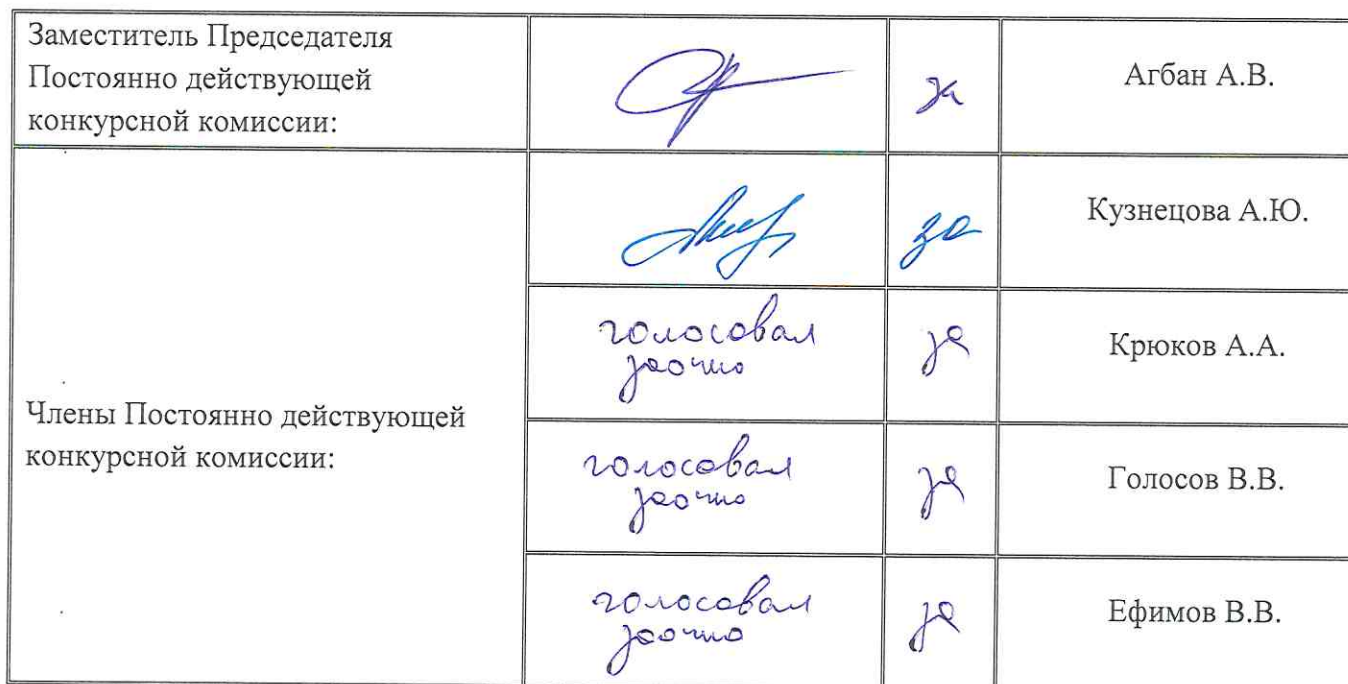 Заместитель Председателя
Постоянно действующей
конкурсной комиссии:
за
Агбан А.В.
Члены Постоянно действующей
конкурсной комиссии:
за
Кузнецова А.Ю.
голосовал
заочно
за
Крюков А.А.
голосовал
заочно
за
Голосов В.В.
голосовал
заочно
за
Ефимов В.В.